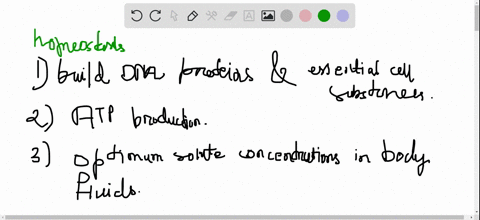 homeostasis
1) build DNA proteins & essential cell
substances.
2) ATP production.
3) Optimum solute concentrations in body
fluids.